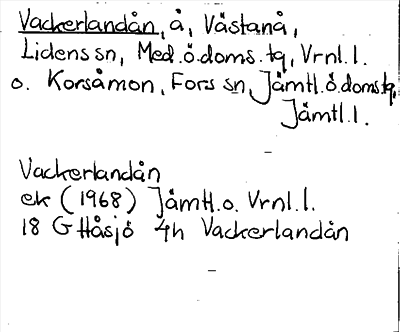 Vackerlandån, å, Västanå,
Lidens sn, Med.ö.doms.tq, Vrnl.l.
o. Korsåmon, Fors sn, Jämtl.ö.doms.tq,
Jämtl.l.
Vackerlandån
ek (1968) Jämtl.o. Vrnl.l.
18 G Håsjö 4h Vackerlandån